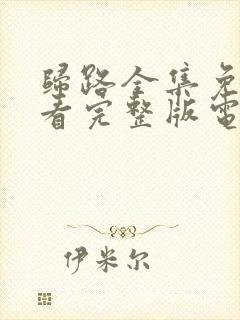 歸路全集免
看完整版電
伊米尔